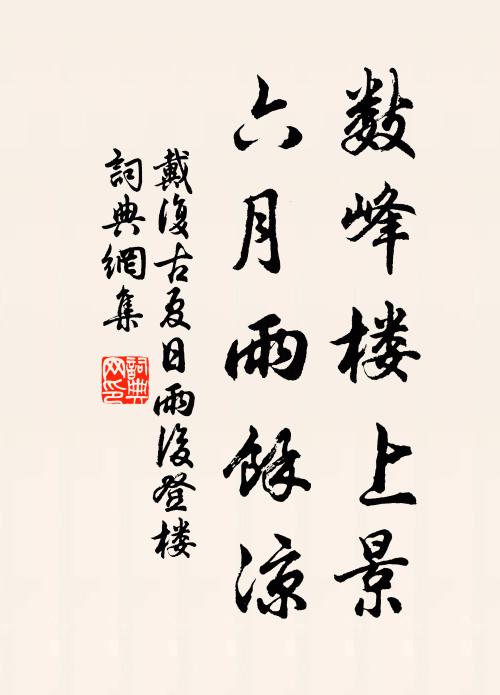 数峰楼上景
六月雨餘凉
戴復古夏日雨後登楼
詞典網集
詞典网印